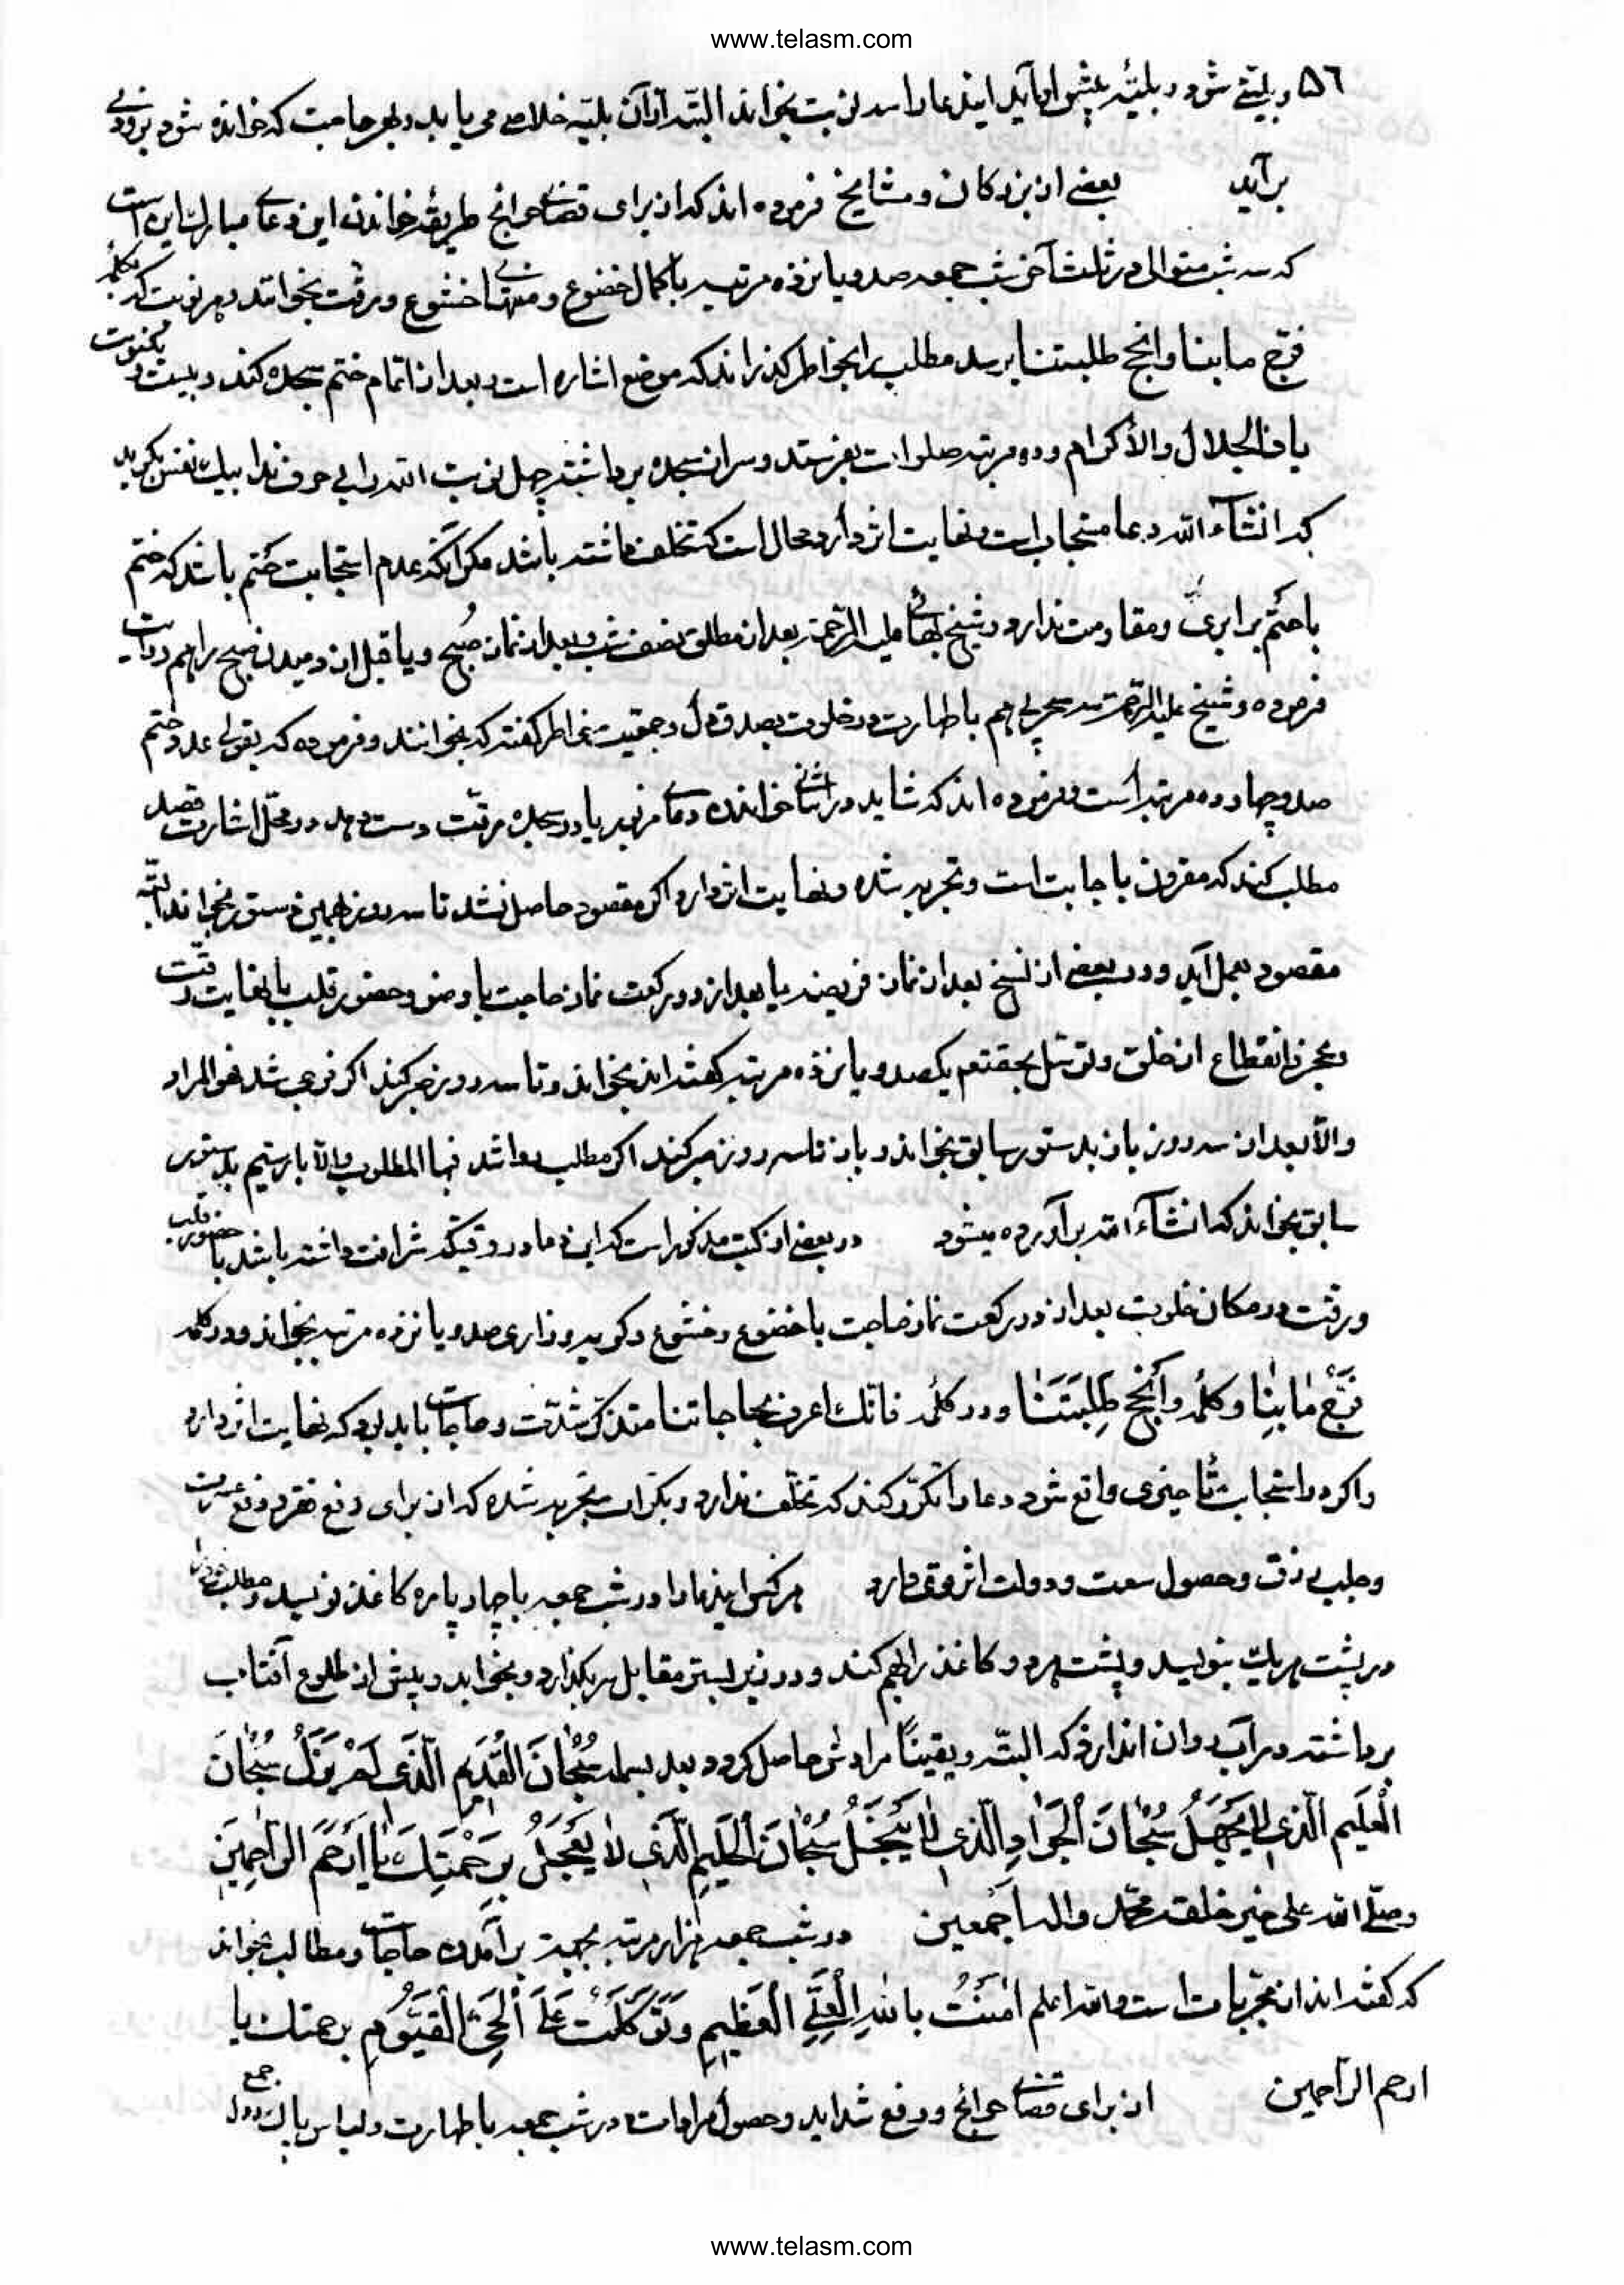 www.telasm.com
۵۶ و بلیتے شود و بلیّهٔ پیش او آید ایندعا را سه نوبت بخواند البته از آن بلیّه خلاصے می یابد و بهر حاجت که خوانده شود بزودی
برآید بعضے از بزرکان و مشایخ فرموده اند که از برای قضاے حوائج طریقهٔ خواندن این دعاے مبارک این است
که سه شب متوالی در ثلث آخر شب جمعه صد و پانزده مرتبه با کمال خضوع و منتهاے خشوع و رقت بخواند و هر نوبت که بکلمهٔ
فرّج ما بنا و انجح طلبتنا برسد مطلب را بخاطر کذراند که موضع اشاره است و بعد از اتمام ختم سجده کند و بیست و یکنوبت
یا ذا الجلال والاکرام و ده مرتبه صلوات بفرستد و سر از سجده برداشته چهل نوبت الله را بی حرف ندا بیک نفس بکوید
که انشآء الله دعا مستجاب است و نهایت اثر دارد محال است که تخلف داشته باشد مکر آنکه عدم استجابت حتم باشد که ختم
با حتم برابری و مقاومت ندارد و شیخ بهائے علیه الرحمه بعد از مطلق نصف شب و بعد از نماز صبح و یا قبل از دمیدن صبح را هم روایت
فرموده و شیخ علیه الرحمه سه سحر پی هم با طهارت در خلوت بصدق دل و جمعیت خاطر کفته که بخوانند و فرموده که بقولی عدد ختم
صد و چهارده مرتبه است و فرموده اند که شاید در اثنای خواندن دعاے مزبور یا در سجده رقت دست دهد در محل اشارت قصد
مطلب کنند که مقرون باجابت است و تجربه شده و نهایت اثر دارد اکر مقصود حاصل نشد تا سه روز بهمین دستور بخواند البته
مقصود بعمل آید و در بعضے از نسخ بعد از نماز فریضه یا بعد از دو رکعت نماز حاجت با وضو و حضور قلب با نهایت رقت
و عجز و انقطاع از خلق و توسل بحقتعم یکصد و پانزده مرتبه کفته اند بخواند و تا سه روز صبر کند اکر فرجی شد فهو المراد
والّا بعد از سه روز باز بدستور سابق بخواند و باز تا سه روز صبر کند اکر مطلب روا شد فبها المطلوب والّا بار سیم بدستور
سابق بخواند که انشآء الله برآورده میشود در بعضے از کتب مذکور است که این دعا در وقتیکه شرافت داشته باشد با حضور قلب
و رقت در مکان خلوت بعد از دو رکعت نماز حاجت با خضوع و خشوع و کریه و زاری صد و پانزده مرتبه بخواند و در کلمه
فَرِّجْ مٰا بِنٰا و کلمهٔ وَانْجِحْ طَلِبَتَنٰا و در کلمهٔ فانّک اعرف بحاجاتنا متذکر شدّت و حاجات باید بود که نهایت اثر دارد
و اکر در استجابت تاخیری واقع شود دعا را تکرّر کنند که تخلّف ندارد و بکرّات تجربه شده که از برای دفع فقر و دفع عسرت
و جلب رزق و حصول سعت و دولت اثر قوی دارد هر کس ایندعا را در شب جمعه با چهار پاره کاغذ نویسد و مطلب خود را
در پشت هر یک بنویسد و پشت هر دو کاغذ را بهم کند و در زیر بستر مقابل سر بکذارد و بخوابد و پیش از طلوع آفتاب
برداشته در آب روان اندازد که البتّه و یقیناً مرادش حاصل کردد بعد بسمله سُبْحٰانَ الْقَدیمِ الَّذی لَمْ یَزَلْ سُبْحٰانَ
الْعَلیمِ الَّذی لٰا یَجْهَلُ سُبْحٰانَ الْجَوٰادِ الَّذی لٰا یَبْخَلُ سُبْحٰانَ الْحَلیمِ الَّذی لٰا یَعْجَلُ بِرَحْمَتِکَ یٰا اَرْحَمَ الرّاحِمینَ
وصلّے الله علی خیر خلقه محمّد واله اجمعین در شب جمعه هزار مرتبه بجهت برآمدن حاجات و مطالب بخواند
که کفته اند از مجرّبات است والله اعلم اٰمَنْتُ بِاللهِ الْعَلِیِّ الْعَظیمِ وَتَوَکَّلْتُ عَلَی الْحَیِّ الْقَیُّومِ برحمتک یا
ارحم الراحمین از برای قضاے حوائج و دفع شداید و حصول مرادات در شب جمعه با طهارت و لباس پاک و جمع دل
www.telasm.com